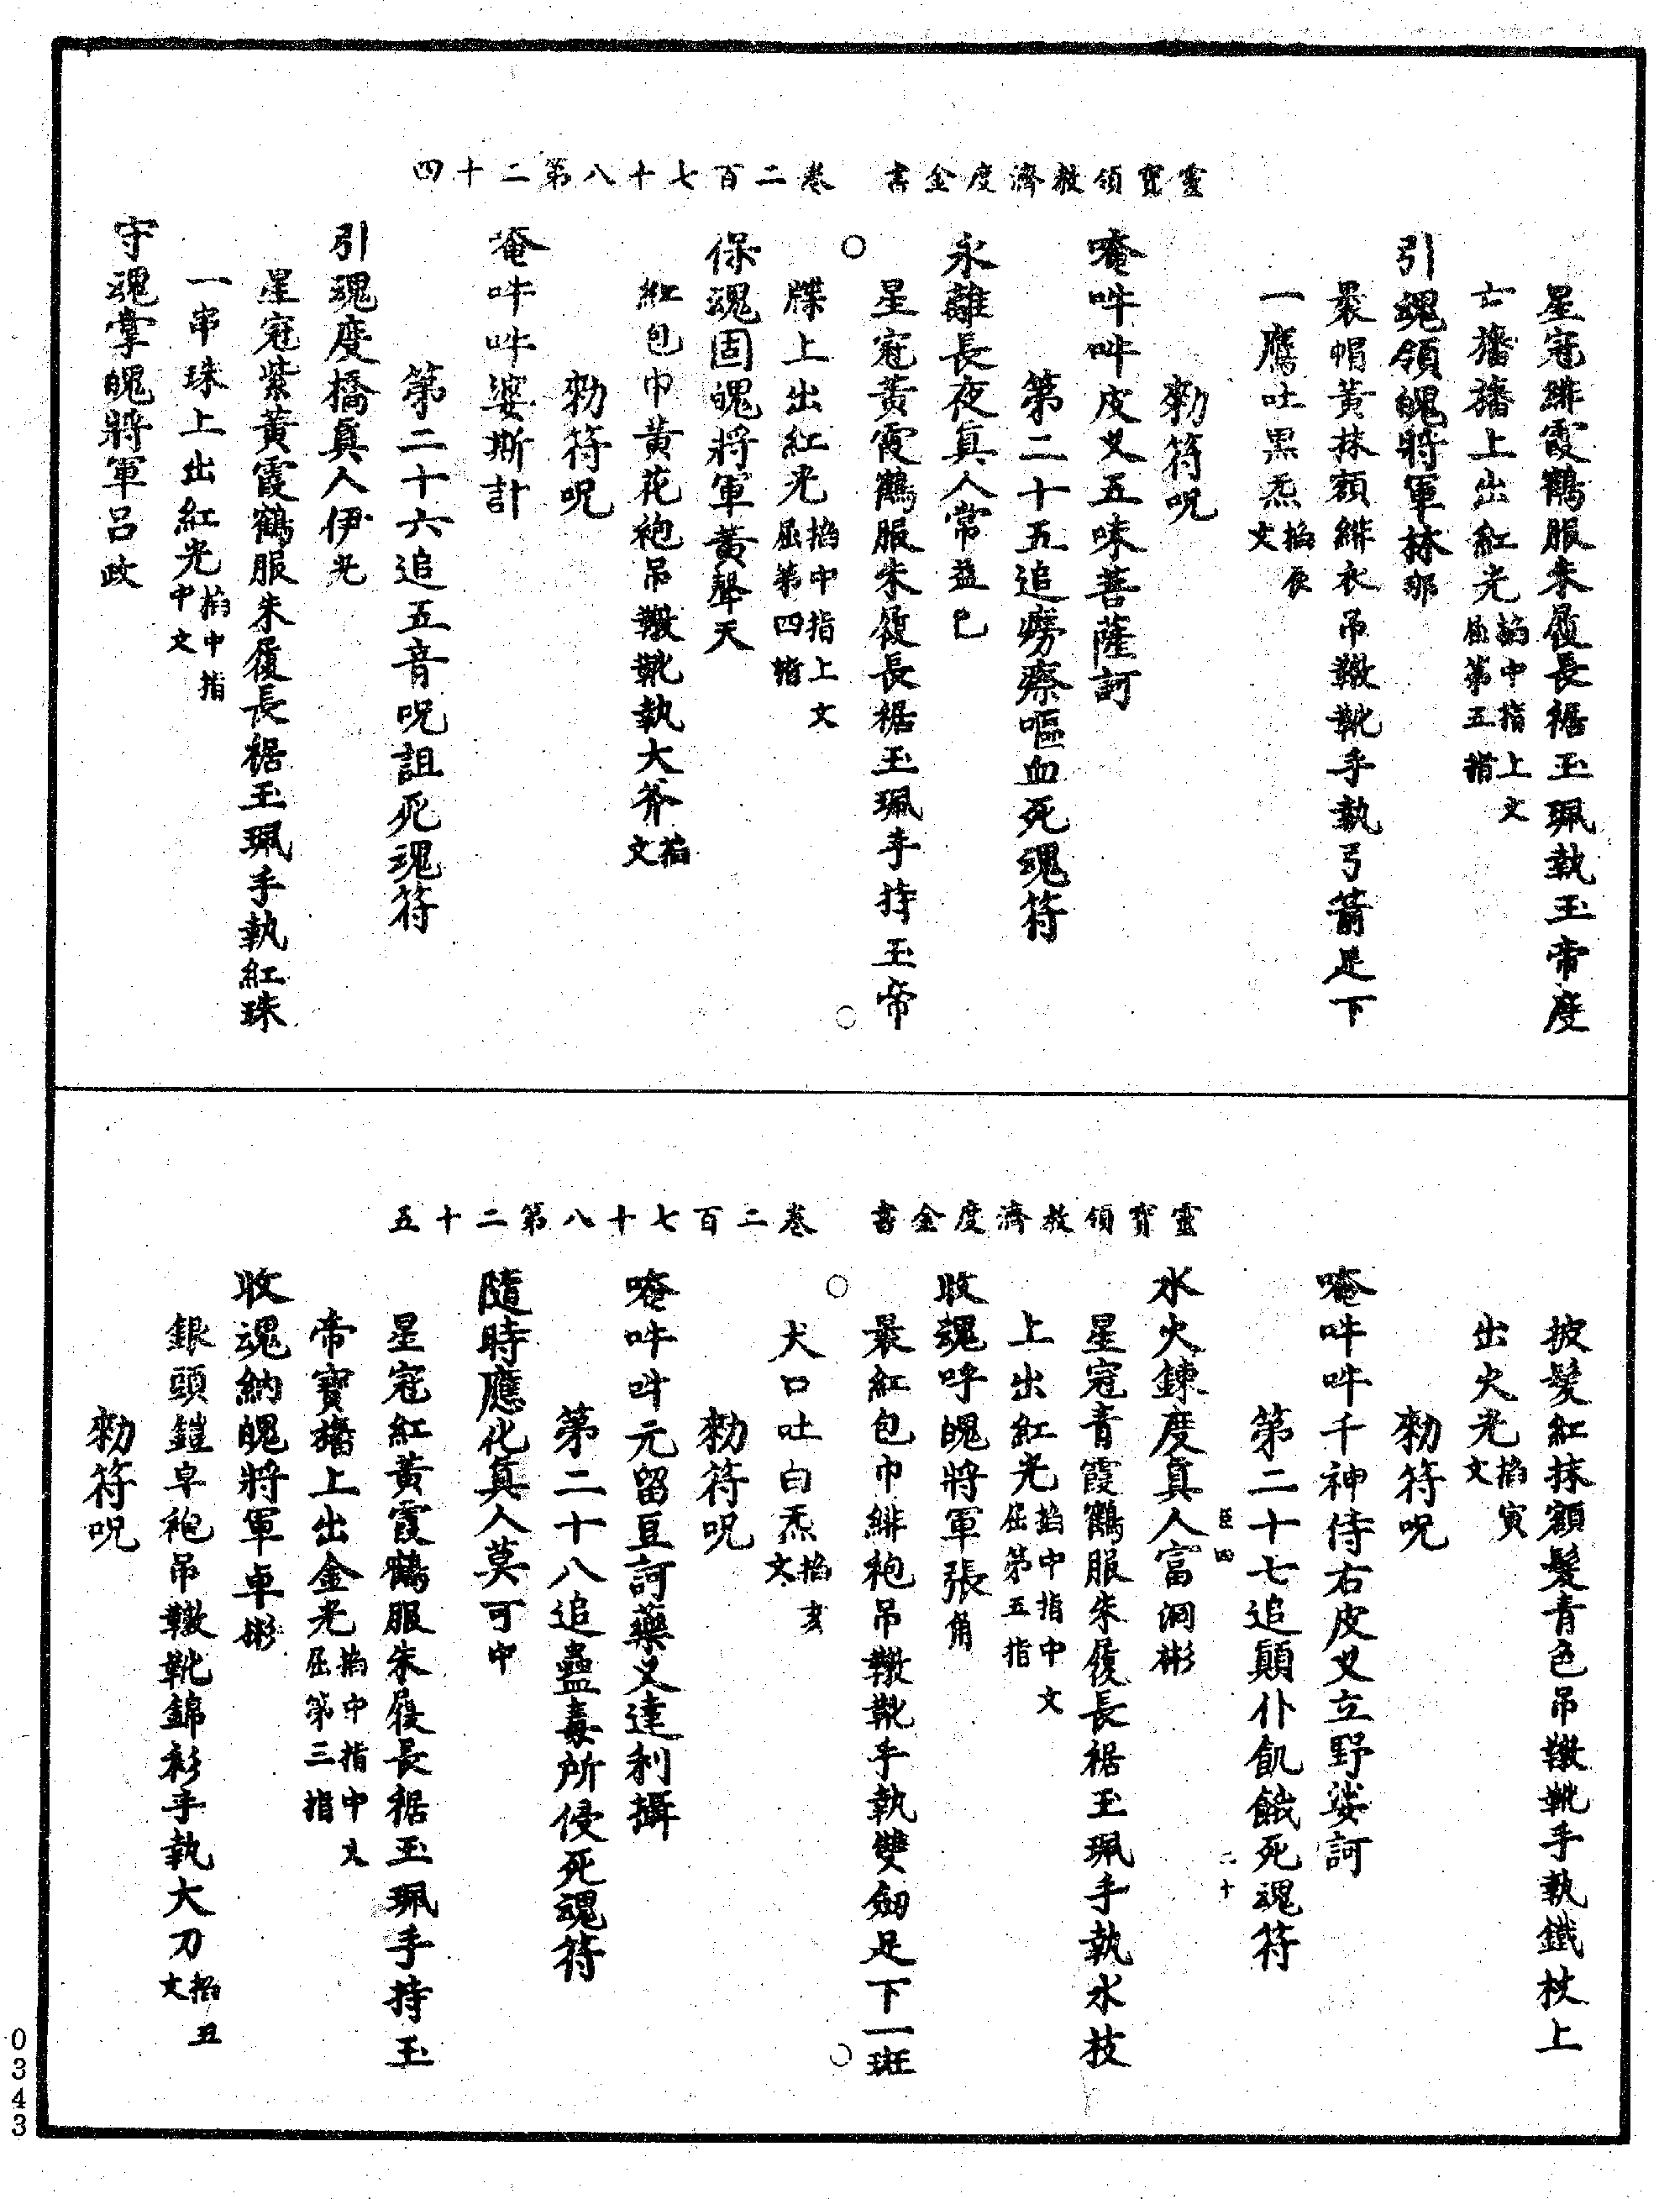 靈寶領教濟度金書　卷二百七十八第二十四
星冠緋霞鶴服朱履長裾玉珮執玉帝度
亡旛旛上出紅光掐中指上文屈第五指
引魂領魄將軍林那
裹帽黃抹額緋衣吊㪍靴手執弓箭足下
一鷹吐黑炁掐辰文
勑符呪
唵吽吽皮叉五味菩薩訶
第二十五追癆瘵嘔血死魂符
永離長夜真人常益巳
星冠黃霞鶴服朱履長裾玉珮手持玉帝
牒上出紅光掐中指上文屈第四指
保魂固魄將軍黃聲天
紅包巾黃花袍吊㪍靴執大斧掐文
勑符呪
唵吽吽婆斯計
第二十六追五音呪詛死魂符
引魂度橋真人伊光
星冠紫黃霞鶴服朱履長裾玉珮手執紅珠
一串珠上出紅光掐中指中文
守魂掌魄將軍呂政
靈寶領教濟度金書　卷二百七十八第二十五
披髮紅抹額髮青色吊㪍靴手執鐵杖上
出火光掐寅文
勑符呪
唵吽吽千神侍右皮叉立野娑訶
第二十七追顛仆飢餓死魂符
臣四　二十
水火鍊度真人富洞彬
星冠青霞鶴服朱履長裾玉珮手執水枝
上出紅光掐中指中文屈第五指
收魂呼魄將軍張角
裹紅包巾緋袍吊㪍靴手執雙劒足下一斑
犬口吐白炁掐亥文
勑符呪
唵吽吽元留豆訶藥叉達利攝
第二十八追蠱毒所侵死魂符
隨時應化真人莫可中
星冠紅黃霞鶴服朱履長裾玉珮手持玉
帝寶旛上出金光掐中指中文屈第三指
收魂納魄將軍卓彬
銀頭鎧皁袍吊㪍靴錦衫手執大刀掐丑文
勑符呪
0343